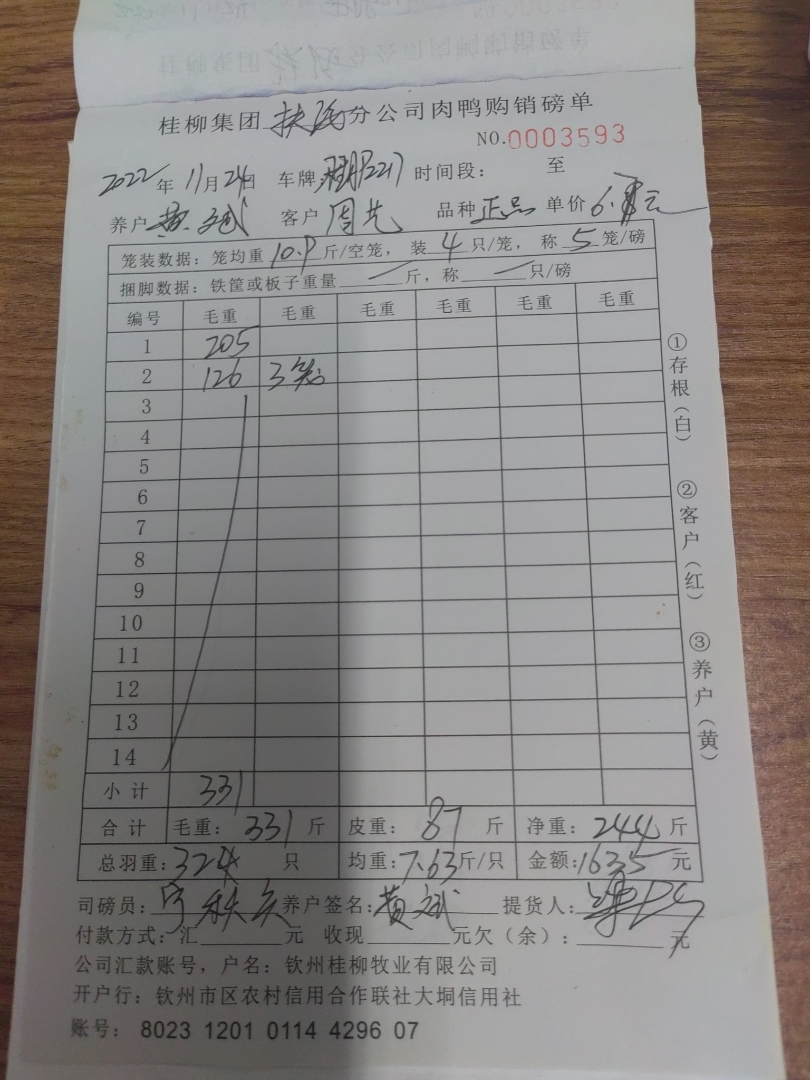 桂柳集团 分公司肉鸭购销磅单
NO.0003593
2022年11月24日 车牌 时间段： 至
养户 黄斌 客户 周先 品种 正品 单价 6. 元
笼装数据：笼均重10.9斤/空笼，装4只/笼，称5笼/磅
捆脚数据：铁筐或板子重量 斤，称 只/磅
编号 毛重 毛重 毛重 毛重 毛重 毛重
1 205
2 126 3笼
3
4
5
6
7
8
9
10
11
12
13
14
小计 331
合计 毛重：331斤 皮重：87斤 净重：244斤
总羽重：32只 均重：7.63斤/只 金额：1635元
司磅员： 养户签名：黄斌 提货人：
付款方式：汇 元 收现 元欠（余）： 元
公司汇款账号，户名：钦州桂柳牧业有限公司
开户行：钦州市区农村信用合作联社大垌信用社
账号：8023 1201 0114 4296 07
①存根（白）
②客户（红）
③养户（黄）